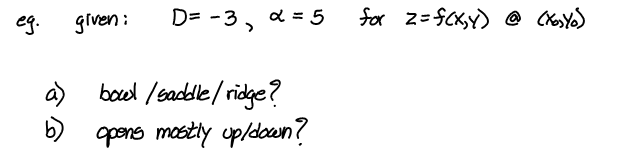 eg. given: D= -3, α = 5 for z=f(x,y) @ (x₀,y₀)
a) bowl /saddle/ridge?
b) opens mostly up/down?